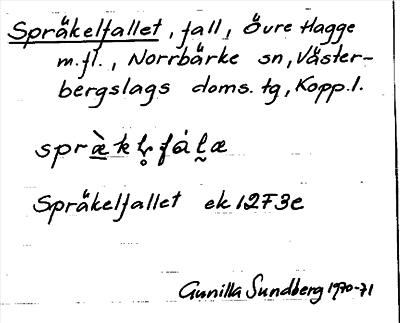 Språkelfallet, fall, Övre Hagge
m.fl., Norrbärke sn, Väster-
bergslags doms. tg, Kopp.l.
Språkelfallet ek 12F3e
Gunilla Sundberg 1970-71